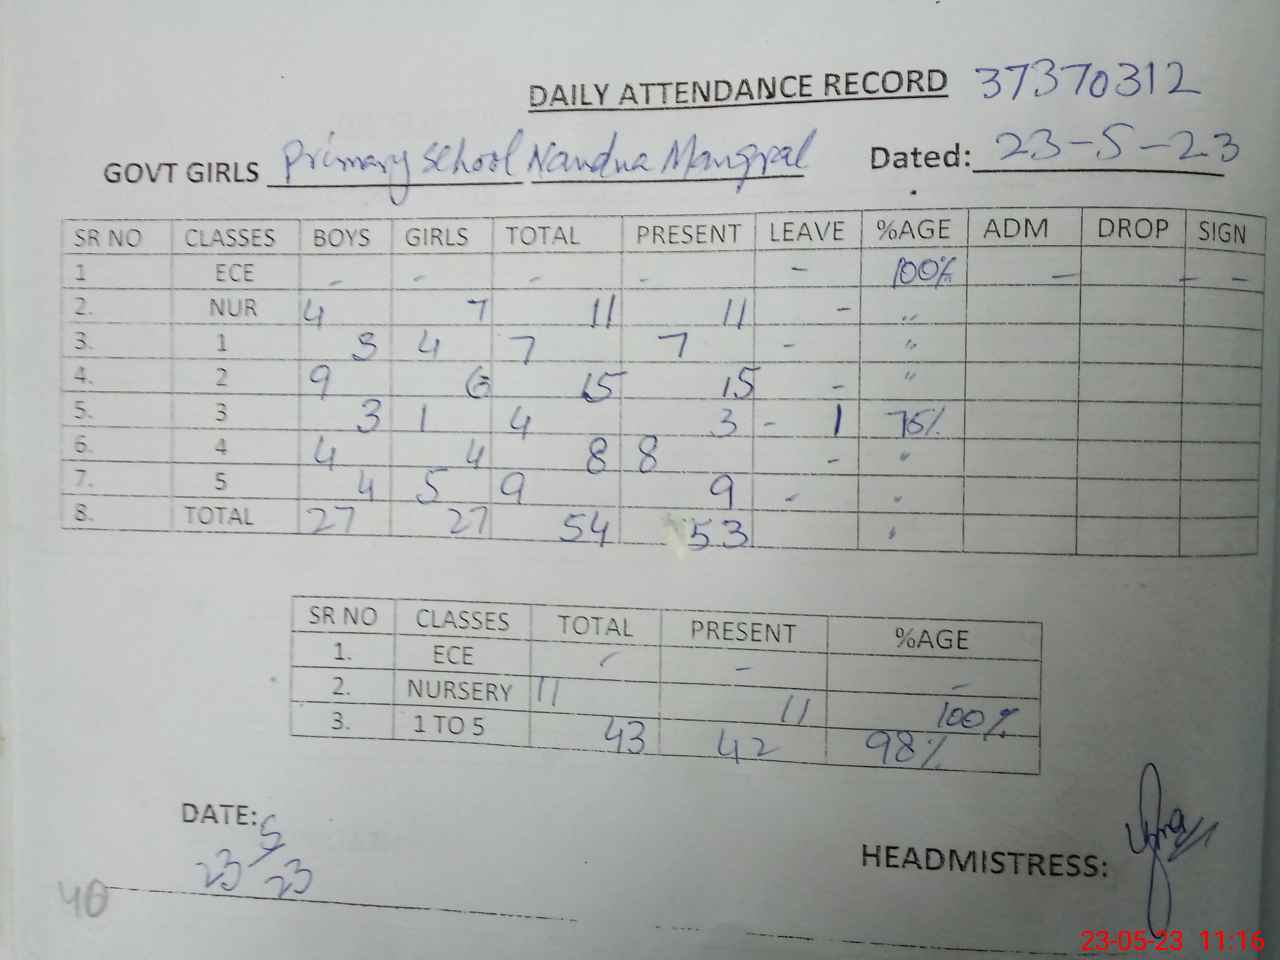 DAILY ATTENDANCE RECORD 37370312
GOVT GIRLS Primary School Nandna Mangral Dated: 23-5-23
SR NO CLASSES BOYS GIRLS TOTAL PRESENT LEAVE %AGE ADM DROP SIGN
1 ECE - - - - - 100% - - -
2. NUR 4 7 11 11 - "
3. 1 3 4 7 7 - "
4. 2 9 6 15 15 - "
5. 3 3 1 4 3 - 1 75%
6. 4 4 4 8 8 - "
7. 5 4 5 9 9 - "
8. TOTAL 27 27 54 53 "
SR NO CLASSES TOTAL PRESENT %AGE
1. ECE - - -
2. NURSERY 11 11 100%
3. 1 TO 5 43 42 98%
DATE: 23/5/23
HEADMISTRESS:
40
23-05-23 11:16